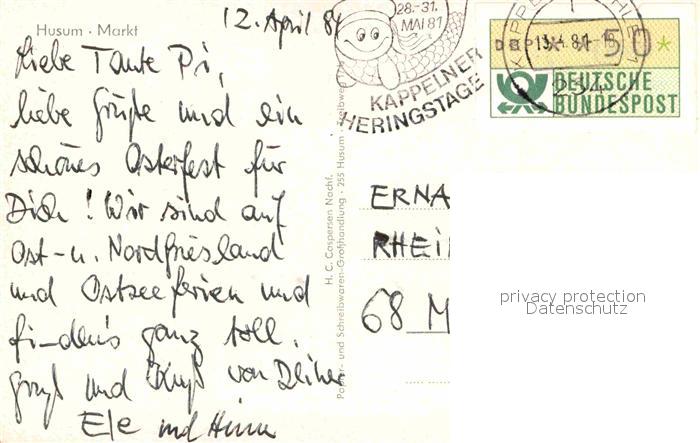 Husum · Markt
12. April 81
Liebe Tante Pi,
liebe Grüße und ein
schönes Osterfest für
Dich! Wir sind auf
Ost- u. Nordfriesland
und Ostseeferien und
finden's ganz toll.
Gruß und Kuß von Deiner
Ele und
28.-31.
MAI 81
KAPPELNER
HERINGSTAGE
50
DEUTSCHE
BUNDESPOST
234
H. C. Caspersen Nachf.
Papier- und Schreibwaren-Großhandlung · 255 Husum
ERNA
RHEI
68 M
privacy protection
Datenschutz